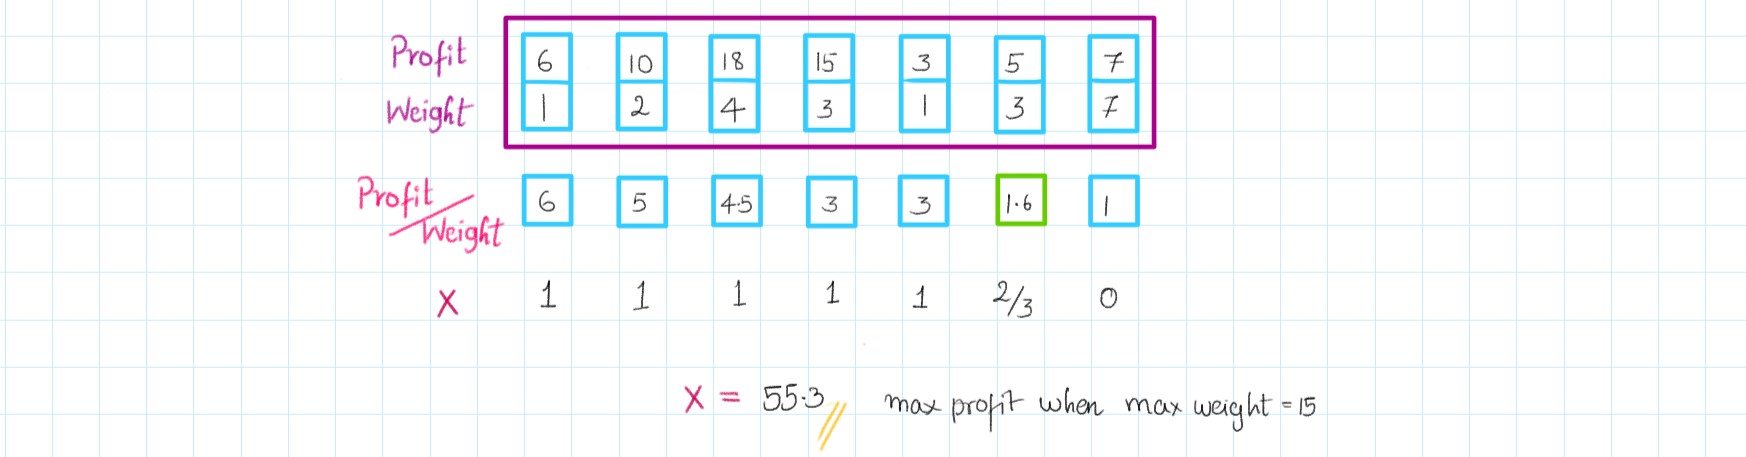 Profit 6 10 18 15 3 5 7
Weight 1 2 4 3 1 3 7
Profit/Weight 6 5 4.5 3 3 1.6 1
X 1 1 1 1 1 2/3 0
X = 55.3 max profit when max weight = 15